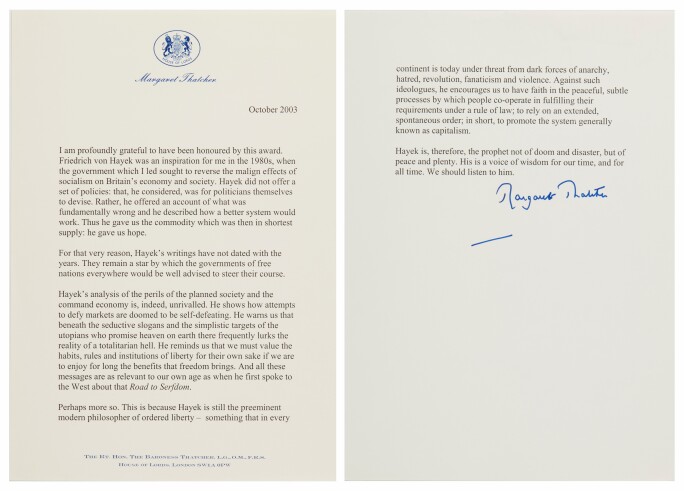 HOUSE OF LORDS
Margaret Thatcher
October 2003
I am profoundly grateful to have been honoured by this award.
Friedrich von Hayek was an inspiration for me in the 1980s, when
the government which I led sought to reverse the malign effects of
socialism on Britain's economy and society. Hayek did not offer a
set of policies: that, he considered, was for politicians themselves
to devise. Rather, he offered an account of what was
fundamentally wrong and he described how a better system would
work. Thus he gave us the commodity which was then in shortest
supply: he gave us hope.
For that very reason, Hayek's writings have not dated with the
years. They remain a star by which the governments of free
nations everywhere would be well advised to steer their course.
Hayek's analysis of the perils of the planned society and the
command economy is, indeed, unrivalled. He shows how attempts
to defy markets are doomed to be self-defeating. He warns us that
beneath the seductive slogans and the simplistic targets of the
utopians who promise heaven on earth there frequently lurks the
reality of a totalitarian hell. He reminds us that we must value the
habits, rules and institutions of liberty for their own sake if we are
to enjoy for long the benefits that freedom brings. And all these
messages are as relevant to our own age as when he first spoke to
the West about that Road to Serfdom.
Perhaps more so. This is because Hayek is still the preeminent
modern philosopher of ordered liberty – something that in every
THE RT. HON. THE BARONESS THATCHER, L.G., O.M., F.R.S.
HOUSE OF LORDS, LONDON SW1A 0PW
continent is today under threat from dark forces of anarchy,
hatred, revolution, fanaticism and violence. Against such
ideologues, he encourages us to have faith in the peaceful, subtle
processes by which people co-operate in fulfilling their
requirements under a rule of law; to rely on an extended,
spontaneous order; in short, to promote the system generally
known as capitalism.
Hayek is, therefore, the prophet not of doom and disaster, but of
peace and plenty. His is a voice of wisdom for our time, and for
all time. We should listen to him.
Margaret Thatcher